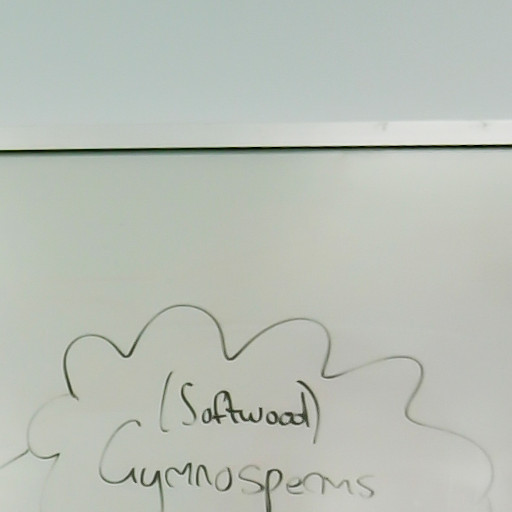 (Softwood)
Gymnosperms